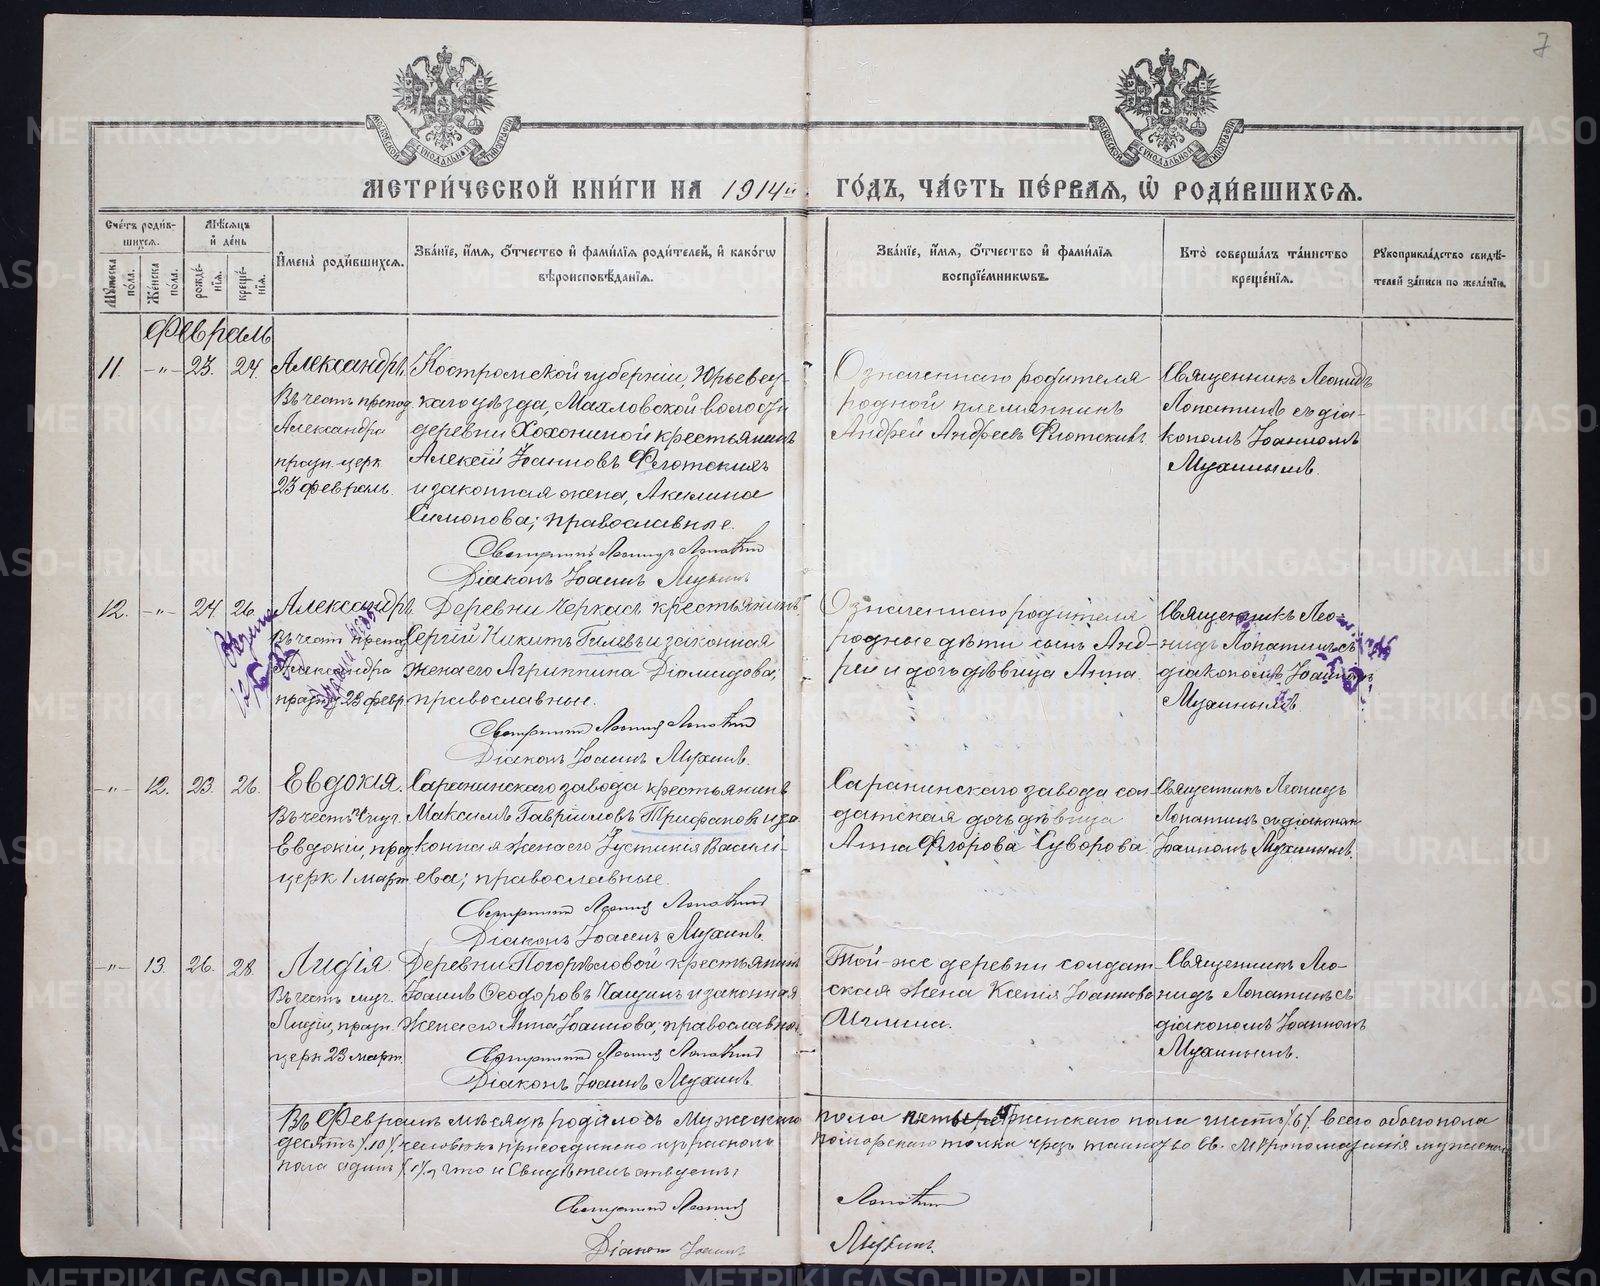 7
МЕТРИ́ЧЕСКОЙ КНИ́ГИ НА 1914й ГО́ДЪ, ЧА́СТЬ ПЕ́РВАЯ, Ѿ РОДИ́ВШИХСЯ.
Сче́тъ роди́вшихся.
Мѣ́сяцъ и де́нь
Му́жеска по́ла.
Же́нска по́ла.
рожде́нія.
креще́нія.
Имена̀ роди́вшихся.
Зва́ніе, и́мя, о́тчество и фами́лія роди́телей, и како́гѡ вѣроисповѣ́данія.
Зва́ніе, и́мя, о́тчество и фами́лія воспріе́мникѡвъ.
Кто̀ соверша́лъ та́инство креще́нія.
Рукоприкла́дство свидѣ́телей за́писи по жела́нію.
Февраль
11. -"- 23. 24.
Александръ.
Въ честь препод.
Александра
празн. церк
23 февраль.
Костромской губерніи, Юрьевец-
каго уѣзда, Махловской волости
деревни Хохониной крестьянинъ
Алексій Іоанновъ Флотскихъ
и законная жена, Акилина
Симонова; православные.
Священникъ Леонидъ Лопатинъ
Діаконъ Іоаннъ Мухинъ
Означеннаго родителя
родной племянникъ
Андрей Андреевъ Флотскихъ
Священникъ Леонидъ
Лопатинъ съ діа-
кономъ Іоанномъ
Мухинымъ.
12. -"- 24. 26.
Александръ
Въ честь препод
Александра
празд 23 февр
Деревни Черкасъ крестьянинъ
Сергій Никитъ Гилевъ и законная
жена его Агриппина Діомидова;
православные.
Священникъ Леонидъ Лопатинъ
Діаконъ Іоаннъ Мухинъ.
Означеннаго родителя
родные дѣти сынъ Анд-
рей и дочь дѣвица Анна.
Священникъ Лео-
нидъ Лопатинъ съ
діакономъ Іоанномъ
Мухинымъ
-"- 12. 23. 26.
Евдокія.
Въ честь муч.
Евдокіи, празд
церк 1 март.
Саранинскаго завода крестьянинъ
Максимъ Гавріиловъ Трифановъ и за-
конная жена его Іустинія Василі-
ева; православные.
Священникъ Леонидъ Лопатинъ
Діаконъ Іоаннъ Мухинъ.
Саранинскаго завода сол-
датская дочь дѣвица
Анна Флорова Суворова
Священникъ Леонидъ
Лопатинъ съ діаконом
Іоанномъ Мухинымъ.
-"- 13. 26. 28.
Лидія
Въ честь муч.
Лидіи, празн.
церк 23 март.
Деревни Погорѣловой крестьянинъ
Іоаннъ Ѳеодоровъ Чащинъ и законная
жена его Анна Іоаннова; православные.
Священникъ Леонидъ Лопатинъ
Діаконъ Іоаннъ Мухинъ.
Той-же деревни солдат-
ская жена Ксенія Іоаннова
Игнина.
Священникъ Лео-
нидъ Лопатинъ съ
діакономъ Іоанномъ
Мухинымъ.
Въ Февралѣ мѣсяцѣ родилось Мужескаго пола женскаго пола шесть /6/ всего обоего пола
десять /10/ человѣкъ присоединено изъ раскола поморскаго толка чрезъ таинство Св. Мѵропомазанія мужескаго
пола одинъ /1/, что и свидѣтельствуемъ:
Священникъ Леонидъ Лопатинъ
Діаконъ Іоаннъ Мухинъ.
METRIKI.GASO-URAL.RU